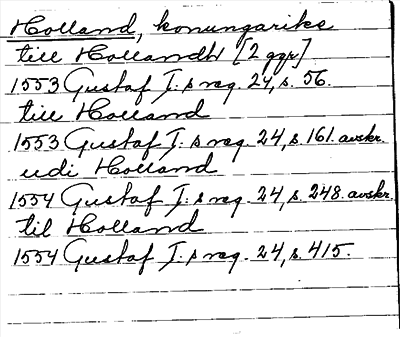 Holland, konungarike
till Hollandh [2 ggr]
1553 Gustaf I:s reg. 24, s. 56.
till Holland
1553 Gustaf I:s reg. 24, s. 161. avskr.
udi Holland
1554 Gustaf I:s reg. 24, s. 248. avskr.
til Holland
1554 Gustaf I:s reg. 24, s. 415.